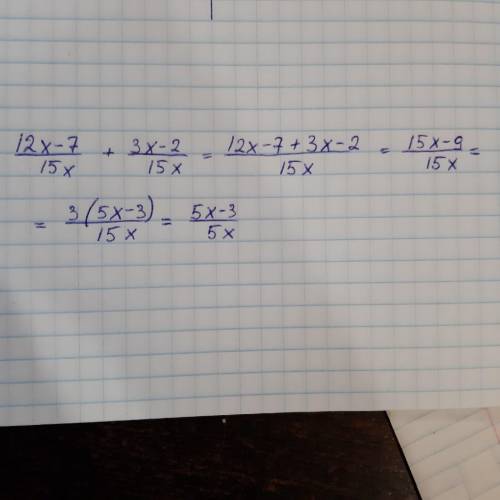 (12x-7)/(15x) + (3x-2)/(15x) = (12x-7+3x-2)/(15x) = (15x-9)/(15x) =
= (3(5x-3))/(15x) = (5x-3)/(5x)